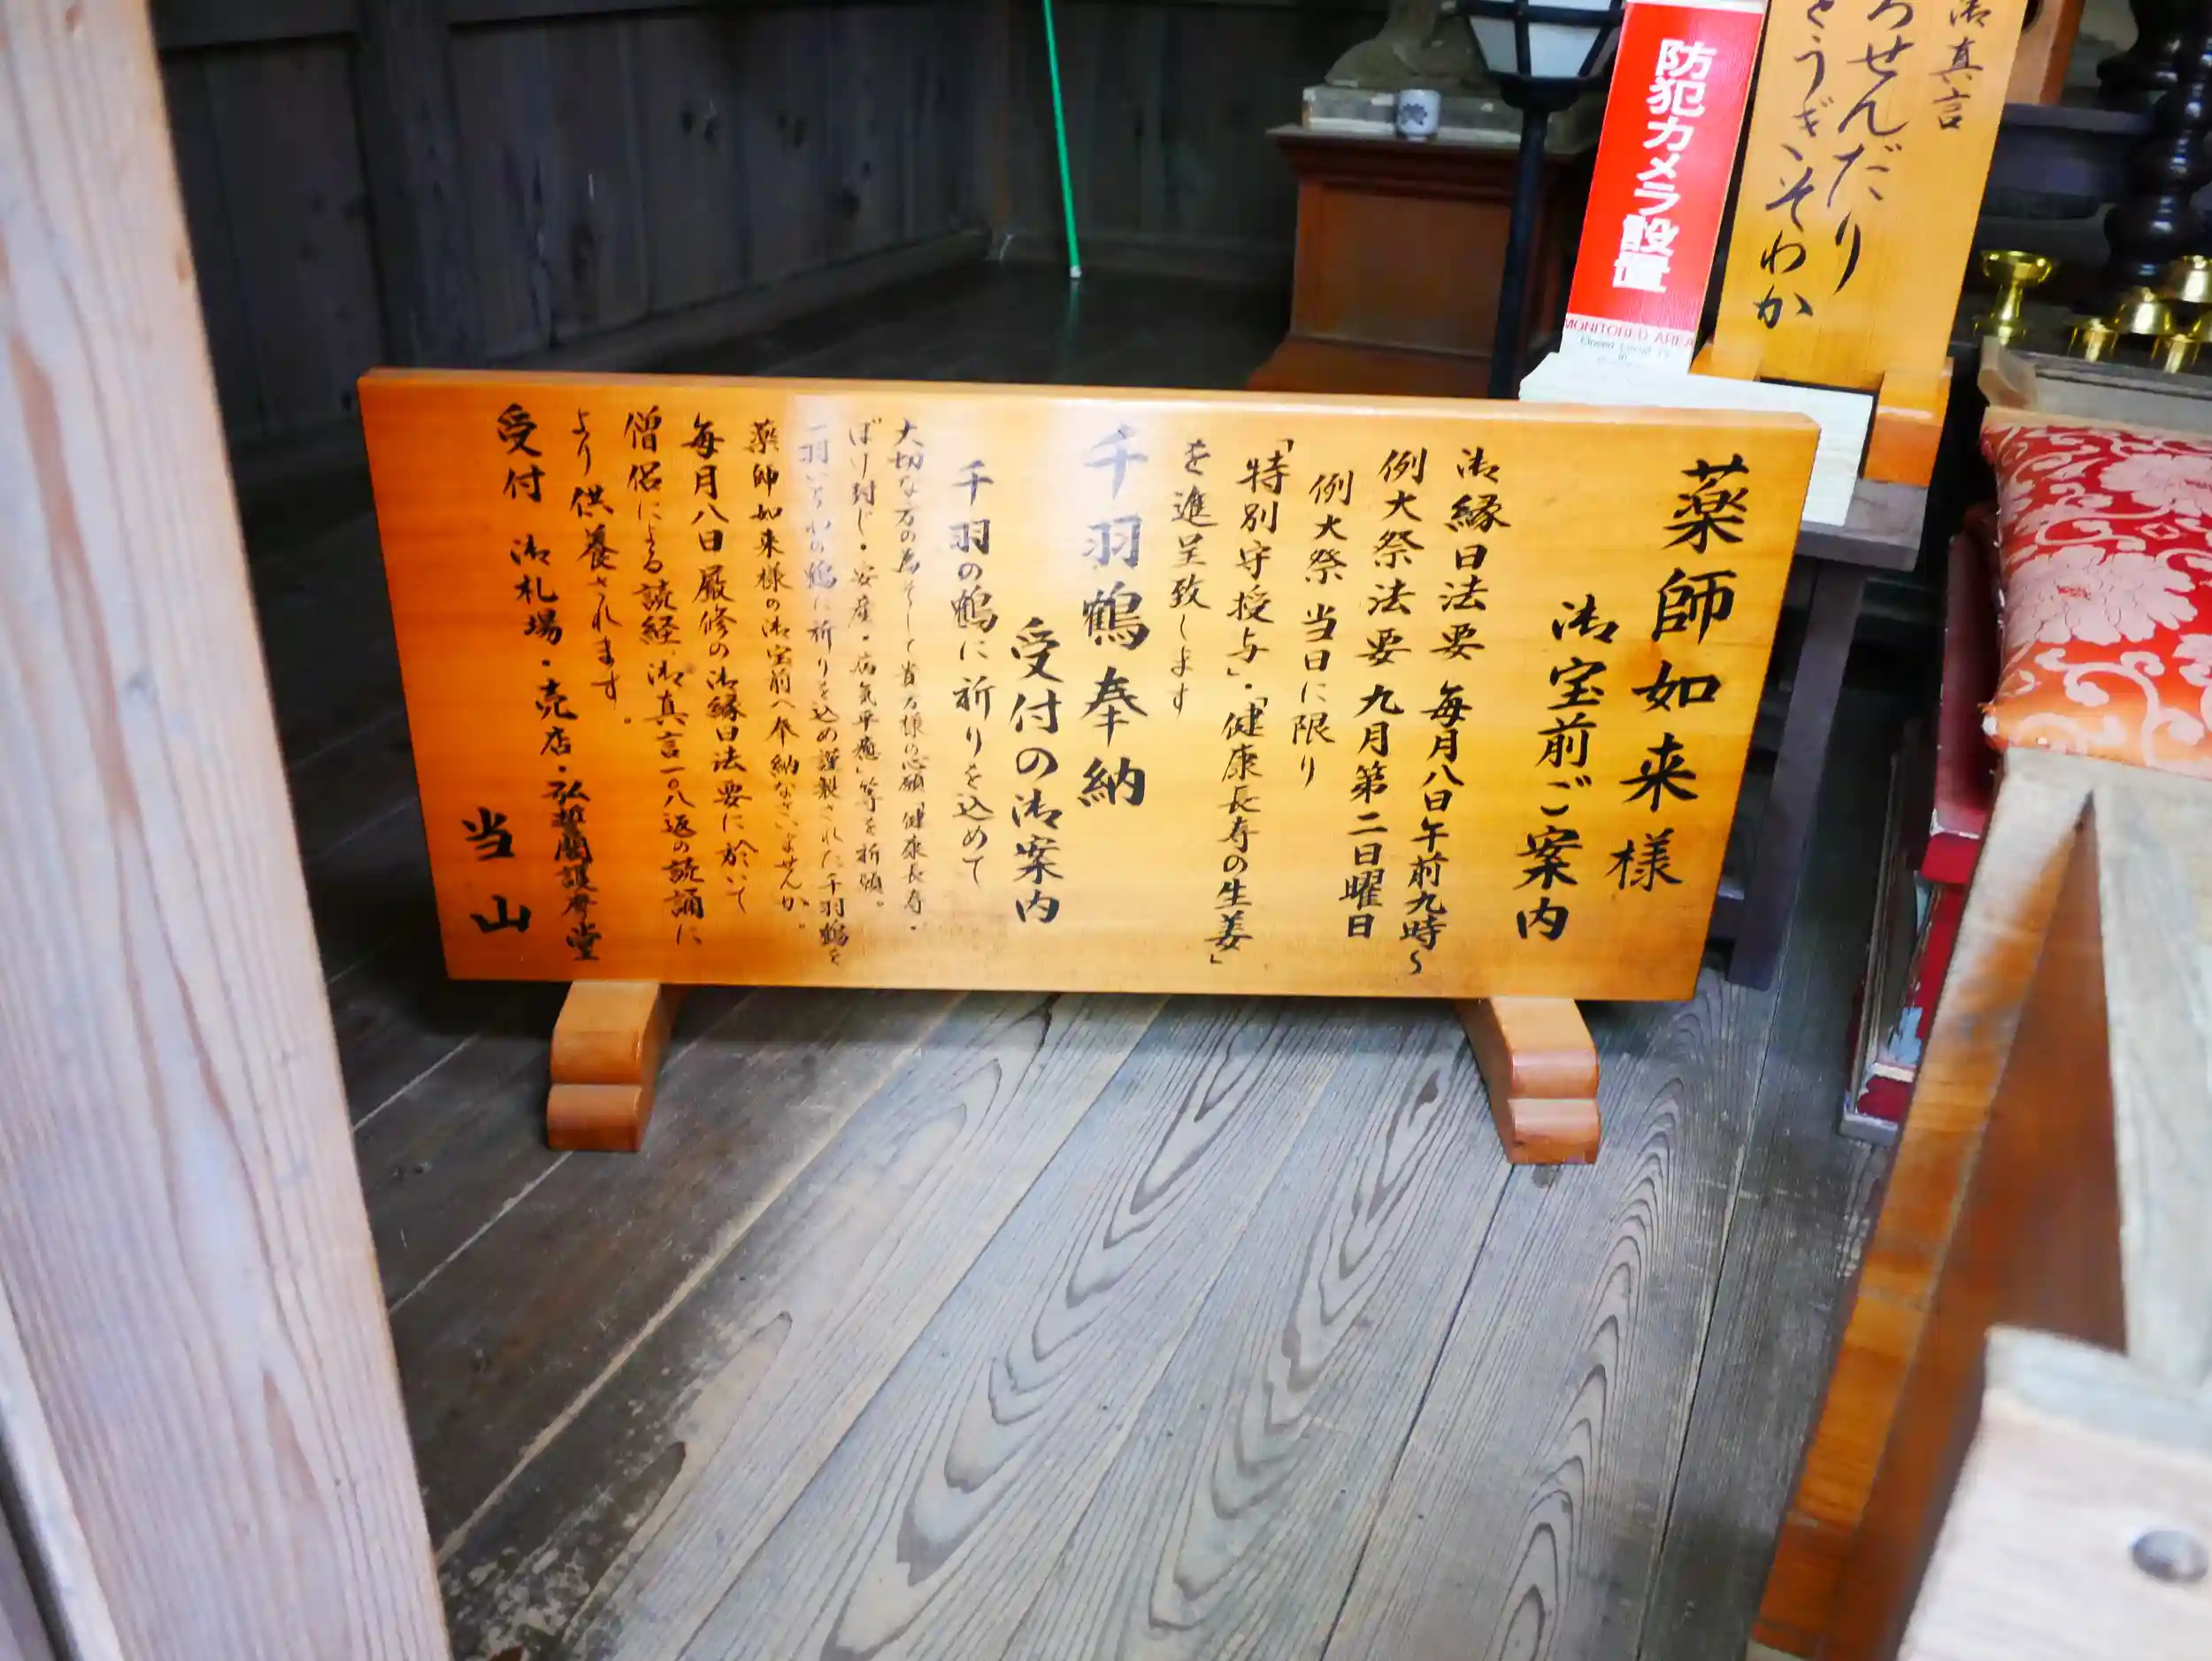 薬師如来様
御宝前ご案内
御縁日法要 毎月八日午前九時〜
例大祭法要 九月第二日曜日
例大祭 当日に限り
「特別守授与」・「健康長寿の生姜」
を進呈致します
千羽鶴奉納
受付の御案内
千羽の鶴に祈りを込めて
大切な方の為そして皆方様の心願「健康長寿・
ぼけ封じ・安産・病気平癒」等を祈願。
一羽いちわの鶴に祈りを込め謹製された千羽鶴を
薬師如来様の御宝前へ奉納なさいませんか。
毎月八日厳修の御縁日法要に於いて
僧侶による読経、御真言一〇八返の読誦に
より供養されます。
受付 御札場・売店・弘誓閣護摩堂
当山
防犯カメラ設置
MONITORED AREA
御真言
ろせんだり
とうぎ、そわか